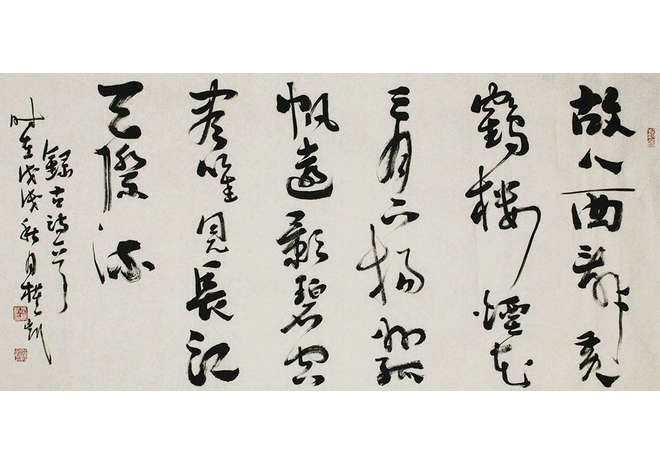 故人西辭黄
鶴樓煙花
三月下揚州孤
帆遠影碧空
盡唯見長江
天際流
錄古詩一首
时在戊戌秋月